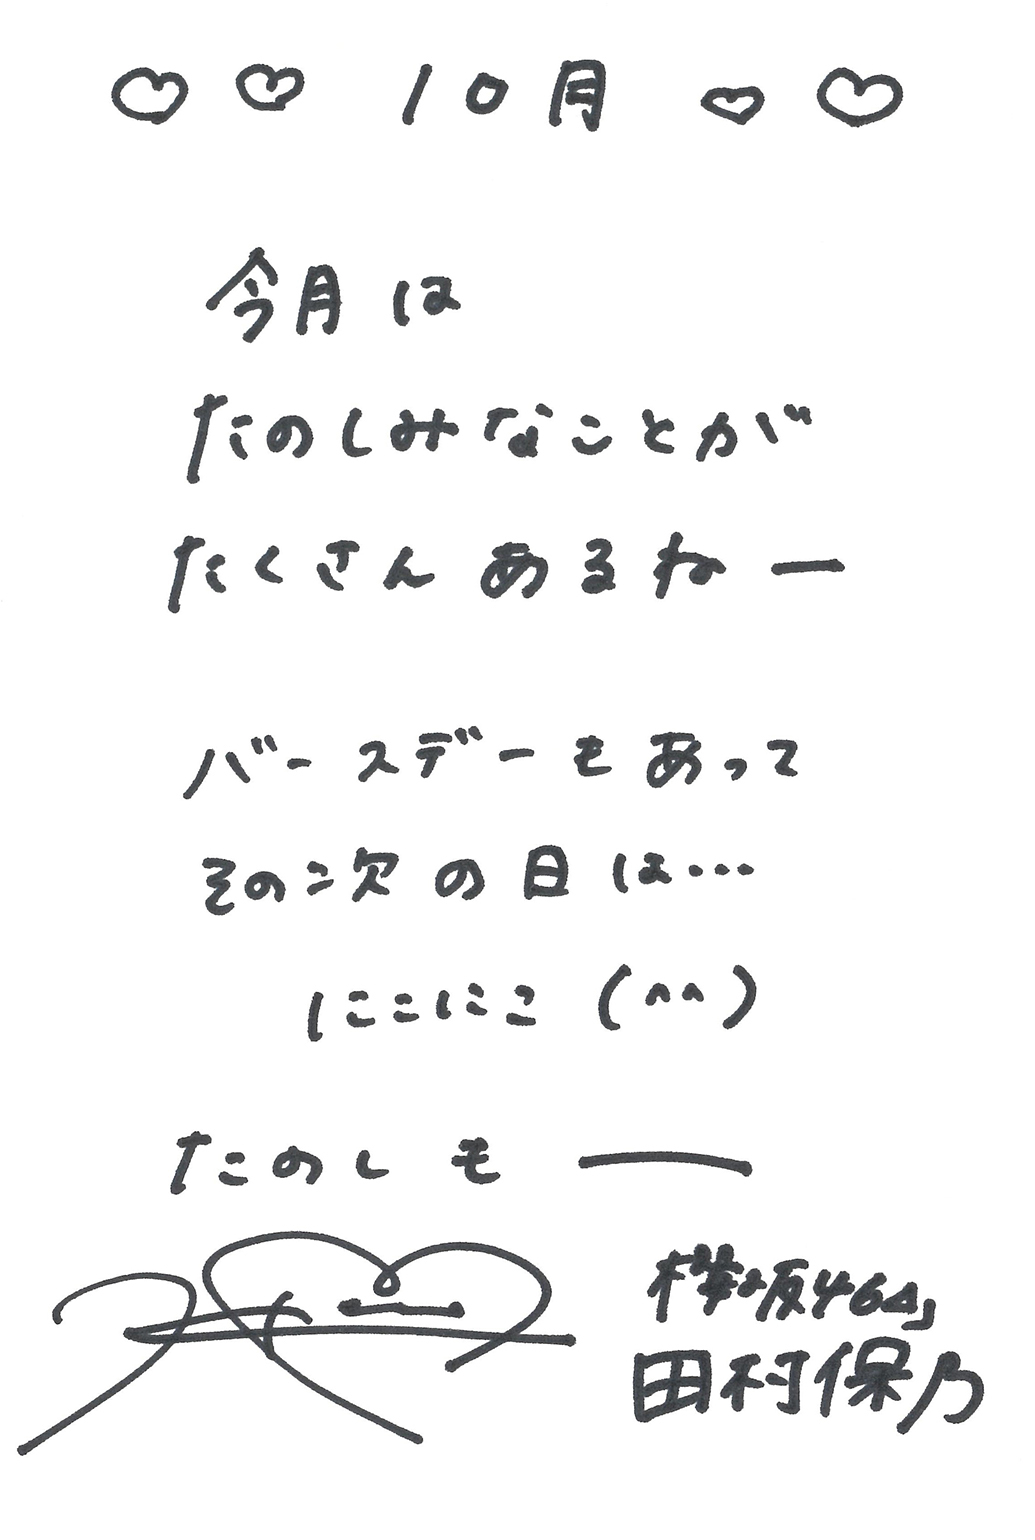 ♡♡ 10月 ♡♡
今月は
たのしみなことが
たくさんあるねー
バースデーもあって
その次の日は…
にこにこ(^^)
たのしも——
欅坂46
田村保乃